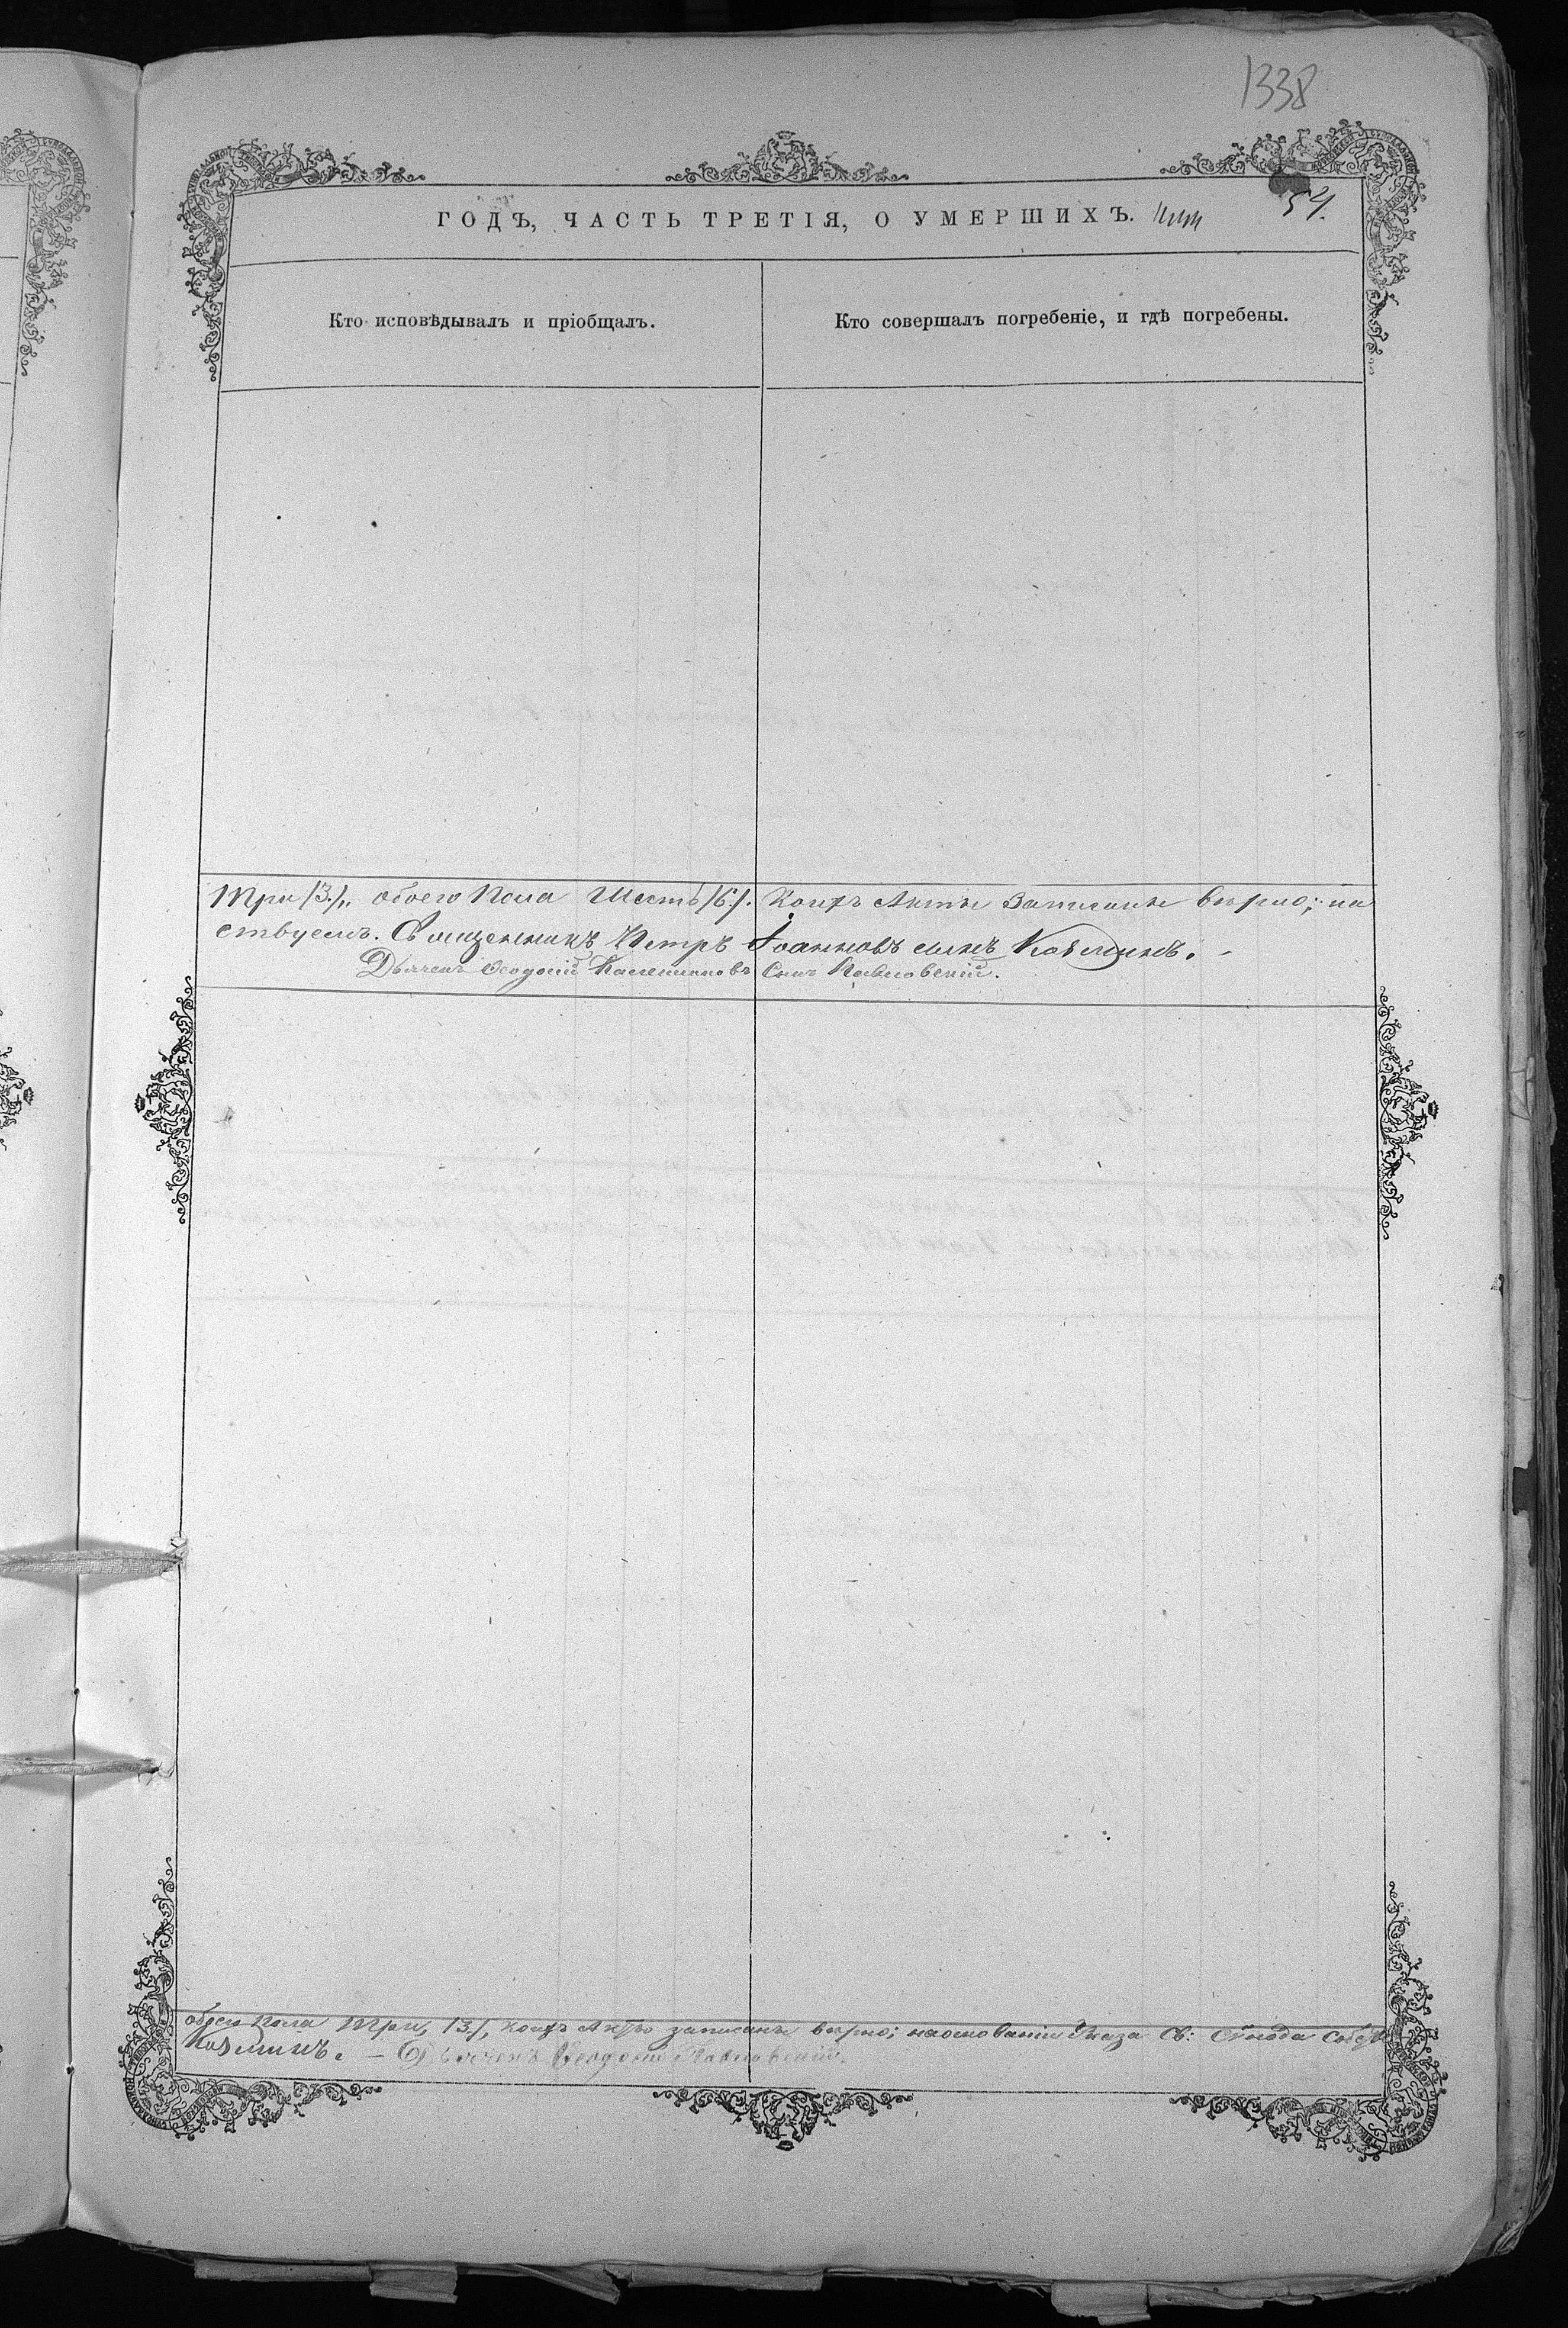 1338
ГОДЪ, ЧАСТЬ ТРЕТІЯ, О УМЕРШИХЪ.
54.
Кто исповѣдывалъ и пріобщалъ.
Кто совершалъ погребеніе, и гдѣ погребены.
Три /3./, обоего пола Шесть /6./. Коихъ Акты Записаны вѣрно; на
ствуемъ. Священникъ Петръ Іоанновъ сынъ Козьминъ.
Дьячекъ Ѳеодосій Сынъ Павловскій.
обоего пола Три, /3./, коихъ Акты записаны вѣрно; на основаніи Указа Св: Сѵнода
Козьминъ. – Дьячекъ Ѳеодосій Павловскій